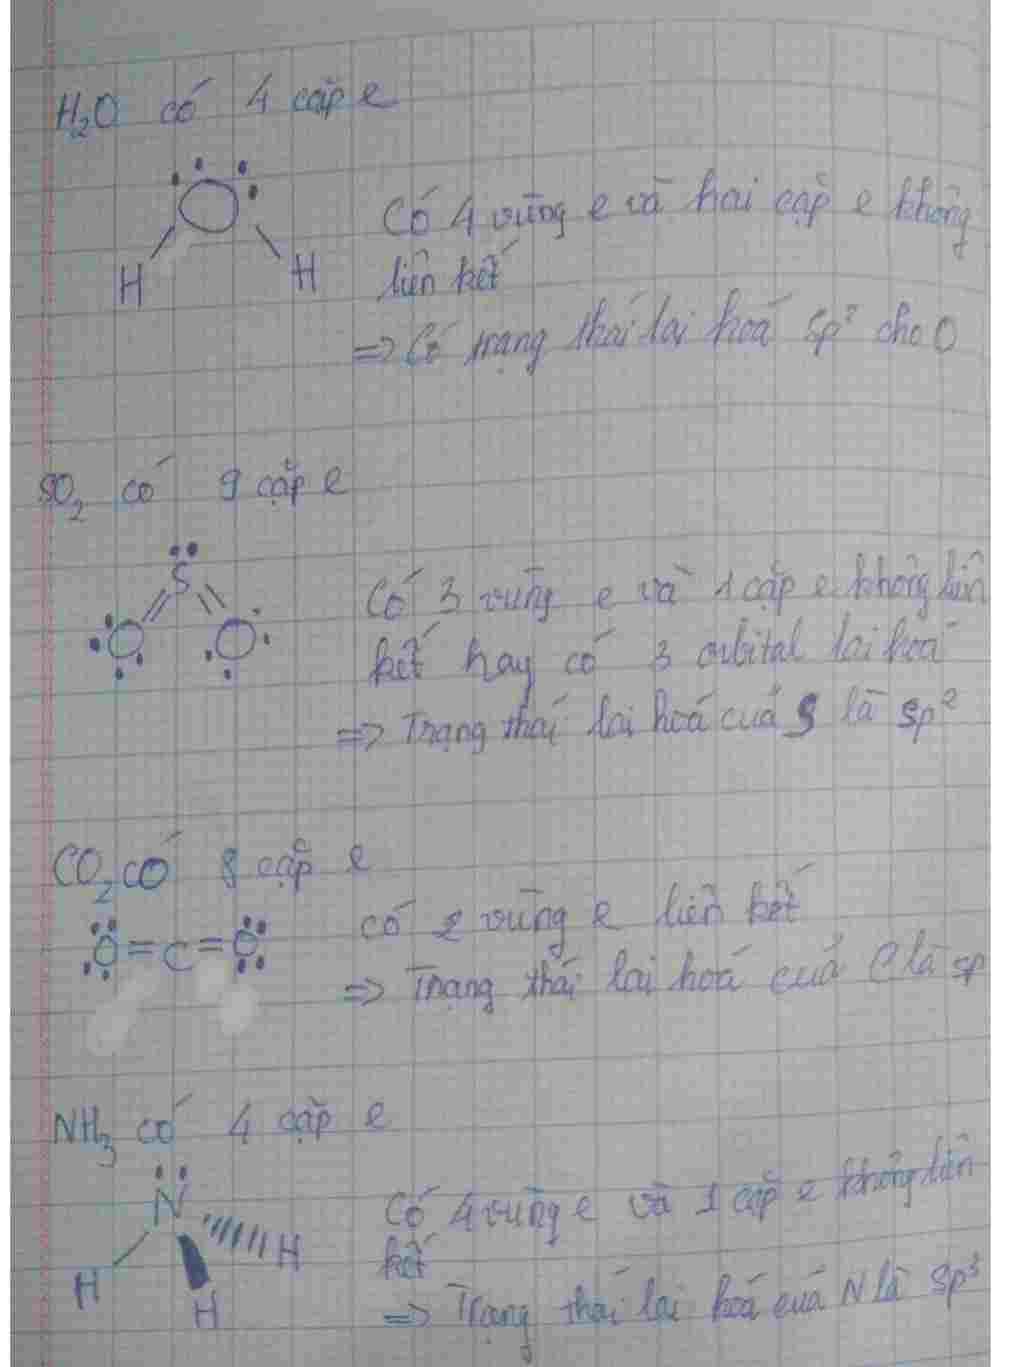 H₂O có 4 cặp e
O
H H
Có 4 vùng e và hai cặp e không
liên kết
=> Có trạng thái lai hoá sp³ cho O
SO₂ có 9 cặp e
S
O O
Có 3 vùng e và 1 cặp e không liên
kết hay có 3 orbital lai hoá
=> Trạng thái lai hoá của S là sp²
CO₂ có 8 cặp e
O = C = O
có 2 vùng e liên kết
=> Trạng thái lai hoá của C là sp
NH₃ có 4 cặp e
N
H H
H
Có 4 vùng e và 1 cặp e không liên
kết
=> Trạng thái lai hoá của N là sp³